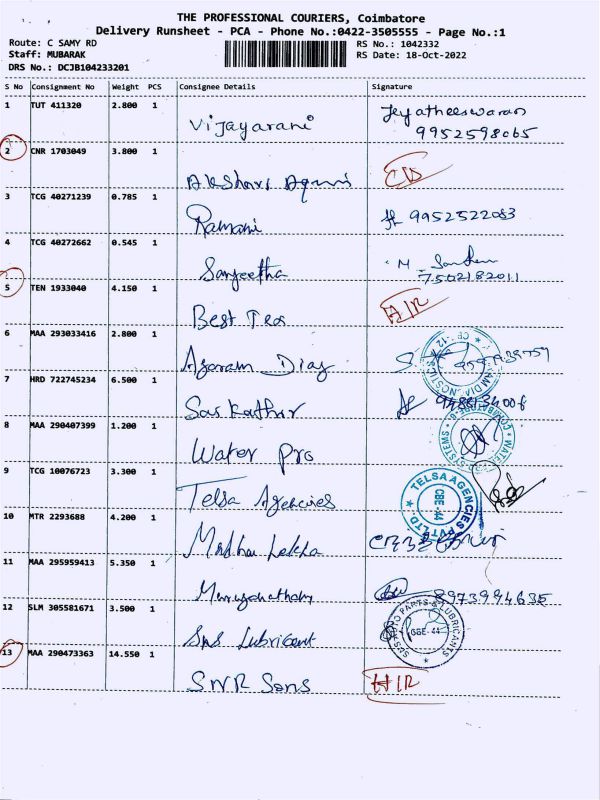 THE PROFESSIONAL COURIERS, Coimbatore
Delivery Runsheet - PCA - Phone No.:0422-3505555 - Page No.:1
Route: C SAMY RD
Staff: MUBARAK
DRS No.: DCJB104233201
RS No.: 1042332
RS Date: 18-Oct-2022
S No Consignment No Weight PCS Consignee Details Signature
1 TUT 411320 2.800 1 Vijayarani Jeyatheeswaran
9952598065
2 CNR 1703049 3.800 1
3 TCG 40271239 0.785 1 Ramani 9952522083
4 TCG 40272662 0.545 1 Sangeetha M.
7502182011
5 TEN 1933040 4.150 1 Best Tea
6 MAA 293033416 2.800 1 Agaram Diag
7 HRD 722745234 6.500 1 Sas Kathir
8 MAA 290407399 1.200 1 Water Pro
WATER SYSTEMS
9 TCG 10076723 3.300 1 Telsa Agencies
TELSA AGENCIES PVT LTD.
CBE-44
10 MTR 2293688 4.200 1 Madhu Lekha
11 MAA 295959413 5.350 1 8973994635
12 SLM 305581671 3.500 1 SMS Lubricant
PARTS & LUBRICANTS
CBE-44
13 MAA 290473363 14.550 1 SNR Sons